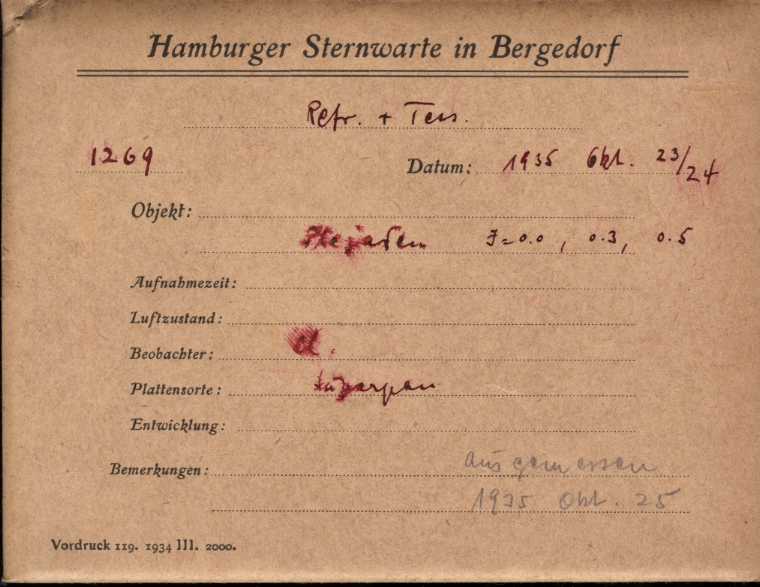 Hamburger Sternwarte in Bergedorf
Refr. + Tess.
1269 Datum: 1935 Okt. 23/24
Objekt:
Plejaden F=0.0, 0.3, 0.5
Aufnahmezeit:
Luftzustand:
Beobachter:
Plattensorte:
Entwicklung:
Bemerkungen: ausgemessen
1935 Okt. 25
Vordruck 119. 1934 III. 2000.